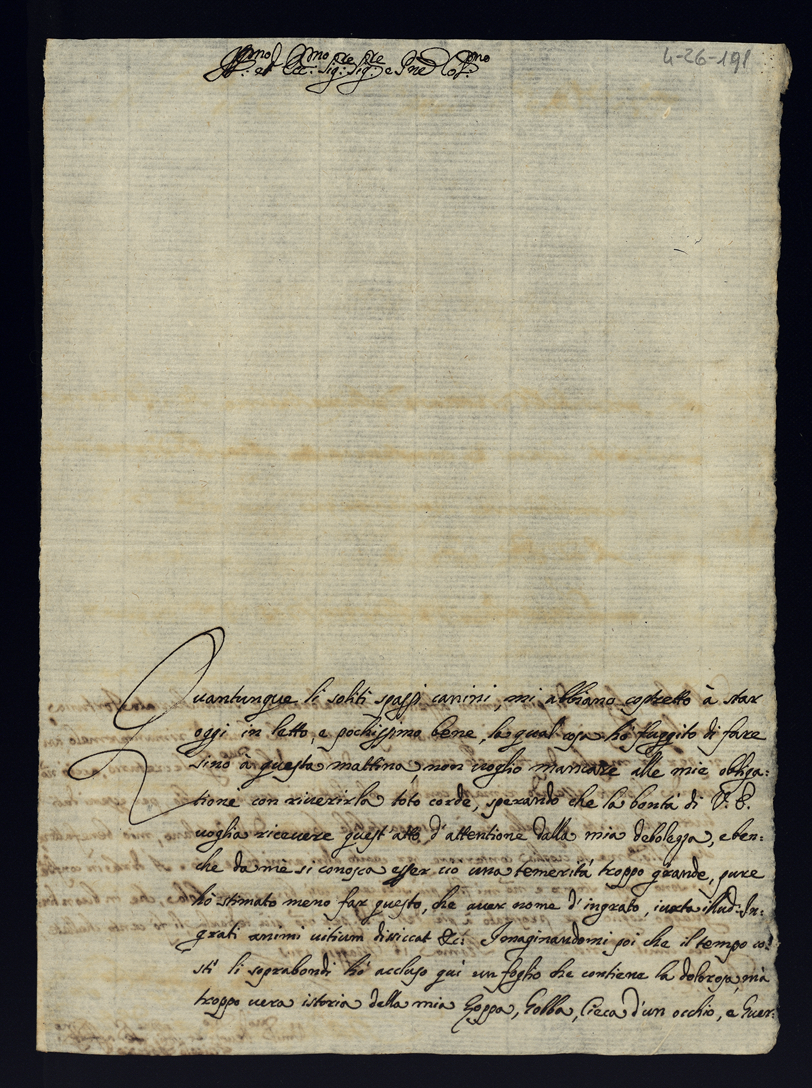 4-26-191
Ill.mo et Ecc.mo Sig.re Sig.re e Pne Col.mo
Quantunque li soliti spassi canini, mi abbiano costretto à star
oggi in letto, e pochissimo bene, la qual cosa hò fuggito di fare
sino à questa mattina, non voglio mancare alle mie obliga:
tioni con riverirla toto corde, sperando che la bontà di V. E.
voglia ricevere quest'atto d'attentione dalla mia debolezza, e ben-
che da mè si conosca esser ciò una temerità troppo grande, pure
hò stimato meno far questo, che aver nome d'ingrato, iuxta illud: In-
grati animi vitium dissiccat &c: Imaginandomi poi che il tempo co-
stì li soprabondi hò accluso qui un foglio che contiene la dolorosa, mà
troppo vera istoria della mia Zoppa, Gobba, Cieca d'un occhio, e Guer-